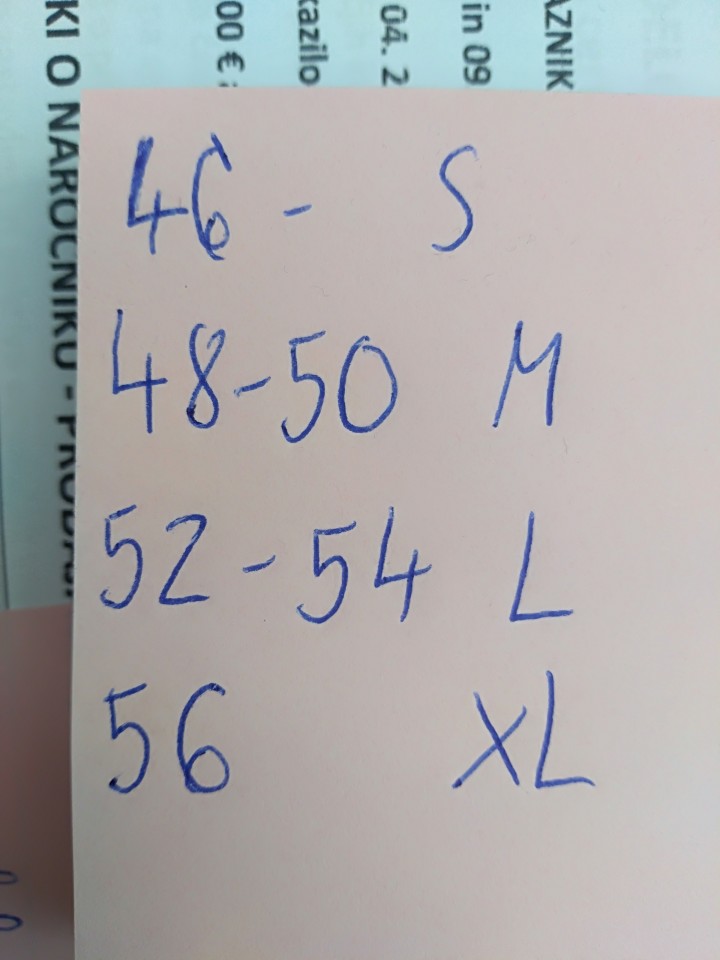 KI O NAROČNIKU - PRODAJ
00 €
kazilo
04. 2
in 09
AZNIK
46 - S
48-50 M
52-54 L
56 XL